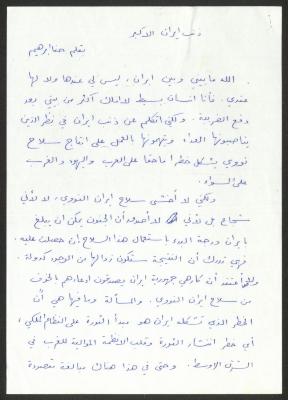 ذنب ايران الاكبر
بقلم حنا ابراهيم
الله ما بيني وبين ايران، ليس لي عندها ولا لها
عندي. فأنا انسان بسيط لا املك أكثر من بيتي بعد
دفع الضريبة. ولكني اتكلم عن ذنب ايران في نظر الذين
يناصبونها العداء ويتهمونها بالعمل على انتاج سلاح
نووي يشكل خطرا ماحقا على العرب واليهود والغرب
على السواء.
ولكني لا أخشى سلاح ايران النووي، لا لأني
شجاع بل لأني لا أصدق أن الجنون يمكن ان يبلغ
بايران درجة البدء باستعمال هذا السلاح ان حصلت عليه.
فهي تدرك أن النتيجة ستكون زوالها من الوجود كدولة.
ولا أعتقد أن كارهي جمهورية ايران يصدقون ادعاءهم بالخوف
من سلاح ايران النووي. والمسألة وما فيها هي أن
الخطر الذي تشكله ايران هو مبدأ الثورة على النظام الملكي،
أي خطر انتشار الثورة وقلب الانظمة الموالية للغرب في
الشرق الاوسط. وحتى في هذا هناك مبالغة مقصودة